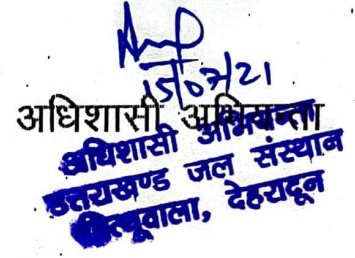 15/07/21
अधिशासी अभियन्ता
अधिशासी अभियन्ता
उत्तराखण्ड जल संस्थान
देहरादून